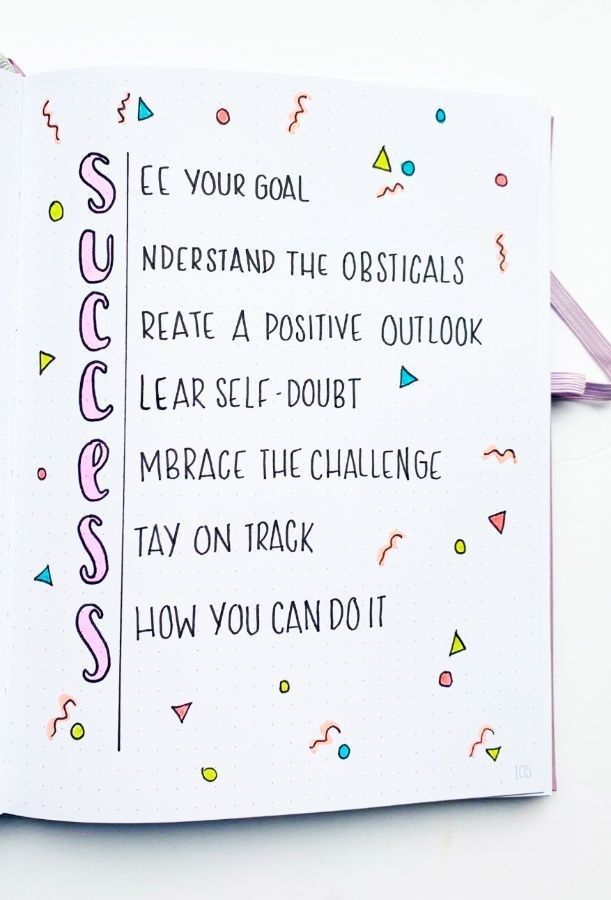 SEE YOUR GOAL
UNDERSTAND THE OBSTICALS
CREATE A POSITIVE OUTLOOK
CLEAR SELF-DOUBT
eMBRACE THE CHALLENGE
STAY ON TRACK
SHOW YOU CAN DO IT
105